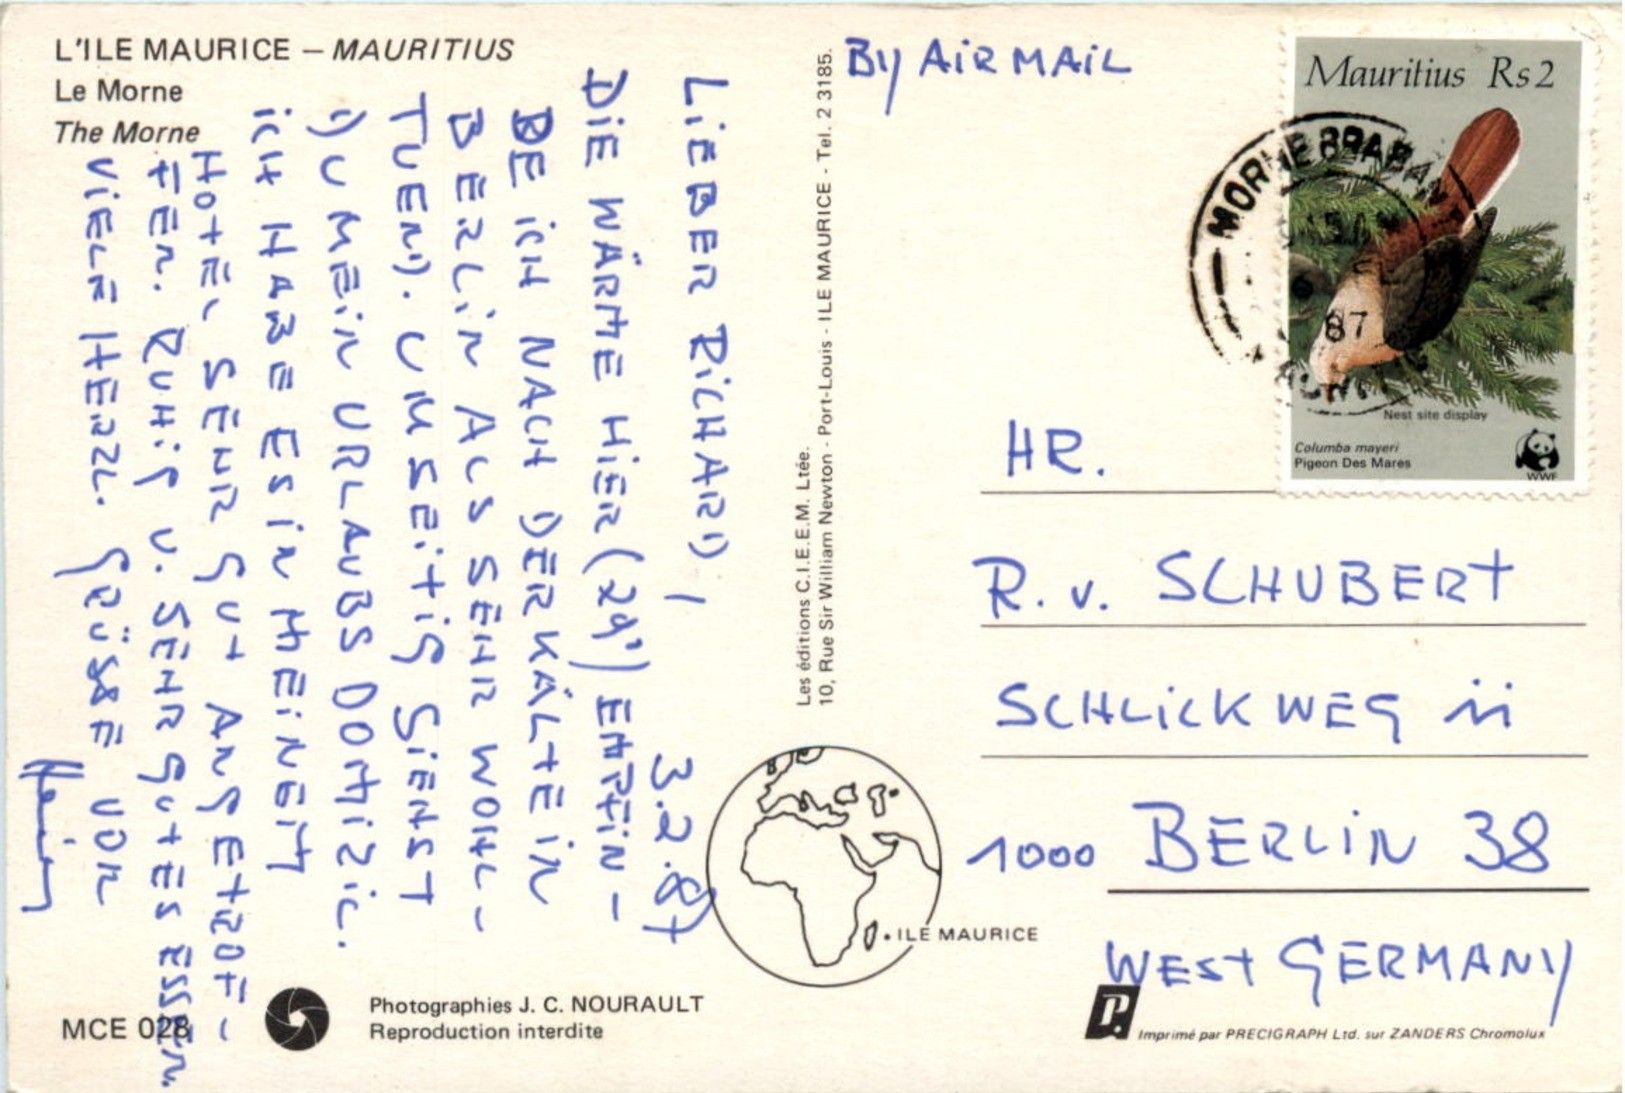 L'ILE MAURICE – MAURITIUS
Le Morne
The Morne
3.2.87
LIEBER RICHARD,
DIE WÄRME HIER (29°) EMPFIN-
DE ICH NACH DER KÄLTE IN
BERLIN ALS SEHR WOHL-
TUEND. UMSEITIG SIEHST
DU MEIN URLAUBSDOMIZIL.
ICH HABE ES IN MEINEM
HOTEL SEHR GUT ANGETROF-
FEN. RUHIG U. SEHR GUTES ESSEN.
VIELE HERZL. GRÜSSE VON
MCE 028
Photographies J. C. NOURAULT
Reproduction interdite
Les éditions C.I.E.E.M. Ltée.
10, Rue Sir William Newton - Port-Louis - ILE MAURICE - Tel. 2 3185.
BY AIR MAIL
Mauritius Rs 2
MORNE BRABANT
87
Nest site display
Columba mayeri
Pigeon Des Mares
WWF
HR.
R. v. SCHUBERT
SCHLICKWEG 11
1000 BERLIN 38
WEST GERMANY
ILE MAURICE
P.
Imprimé par PRECIGRAPH Ltd. sur ZANDERS Chromolux